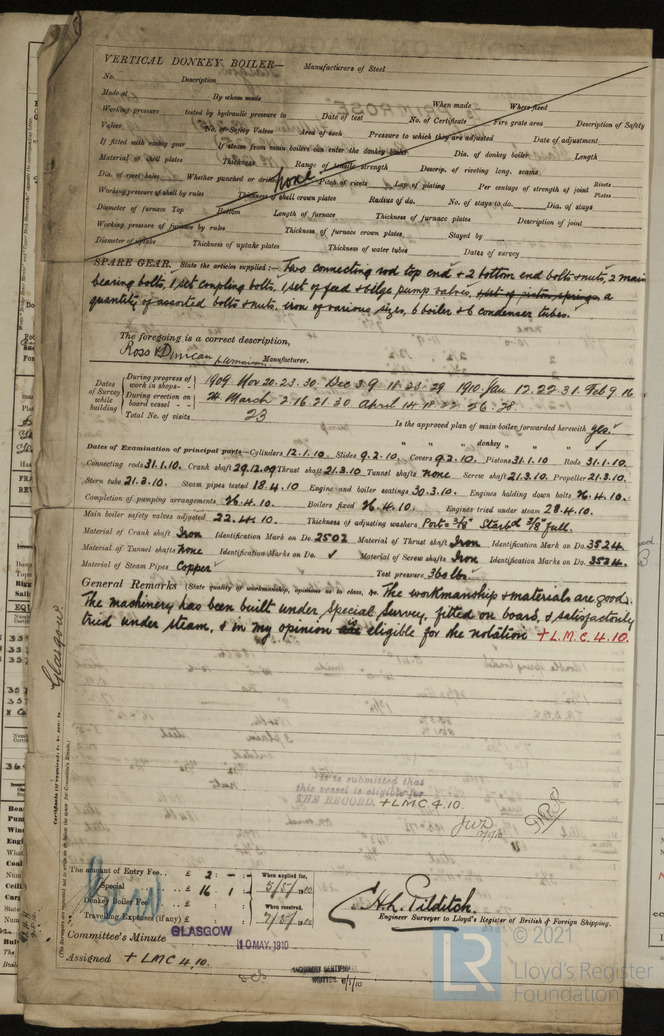 VERTICAL DONKEY BOILER— Manufacturers of Steel
No. Description
Made at By whom made When made Where fixed
Working pressure tested by hydraulic pressure to Date of test No. of Certificate Fire grate area Description of Safety
Valves No. of Safety Valves Area of each Pressure to which they are adjusted Date of adjustment
If fitted with easing gear If steam from main boilers can enter the donkey boiler Dia. of donkey boiler Length
Material of shell plates Thickness Range of tensile strength Descrip. of riveting long. seams
Dia. of rivet holes Whether punched or drilled Pitch of rivets Lap of plating Per centage of strength of joint Rivets Plates
None
Working pressure of shell by rules Thickness of shell crown plates Radius of do. No. of stays to do. Dia. of stays
Diameter of furnace Top Bottom Length of furnace Thickness of furnace plates Description of joint
Working pressure of furnace by rules Thickness of furnace crown plates Stayed by
Diameter of uptake Thickness of uptake plates Thickness of water tubes Dates of survey
SPARE GEAR. State the articles supplied:— Two connecting rod top end & 2 bottom end bolts & nuts, 2 main
bearing bolts, 1 set coupling bolts, 1 set of feed & bilge pump valves, 1 set of piston springs, a
quantity of assorted bolts & nuts, iron of various sizes, 6 boiler & 6 condenser tubes.
The foregoing is a correct description,
Ross & Duncan Manufacturer.
Dates of Survey while building
During progress of work in shops - - 1909 Nov 20. 23. 30. Dec 3. 9. 18. 23. 29 1910 Jan 12. 22. 31. Feb 9. 16
During erection on board vessel - - - 24. March 2. 16. 21. 30 April 14. 18. 22. 26. 28.
Total No. of visits 23
Is the approved plan of main boiler forwarded herewith yes.
" " " donkey " " " ✓
Dates of Examination of principal parts—Cylinders 12.1.10. Slides 9.2.10. Covers 9.2.10. Pistons 31.1.10 Rods 31.1.10.
Connecting rods 31.1.10. Crank shaft 29.12.09 Thrust shaft 21.3.10 Tunnel shafts None Screw shaft 21.3.10. Propeller 21.3.10.
Stern tube 21.3.10. Steam pipes tested 18.4.10 Engine and boiler seatings 30.3.10. Engines holding down bolts 26.4.10.
Completion of pumping arrangements 26.4.10. Boilers fixed 26.4.10. Engines tried under steam 28.4.10.
Main boiler safety valves adjusted 22.4.10. Thickness of adjusting washers Port 3/8" Starbd 3/8" full.
Material of Crank shaft Iron Identification Mark on Do. 2502 Material of Thrust shaft Iron Identification Mark on Do. 3524.
Material of Tunnel shafts None Identification Marks on Do. ✓ Material of Screw shafts Iron Identification Marks on Do. 3524.
Material of Steam Pipes Copper ✓ Test pressure 360 lbs.
General Remarks (State quality of workmanship, opinions as to class, &c. The workmanship & materials are good.
The machinery has been built under Special Survey, fitted on board, & satisfactorily
tried under steam, & in my opinion is eligible for the notation + L.M.C. 4.10.
Glasgow
It is submitted that
this vessel is eligible for
THE RECORD. + LMC 4.10.
The amount of Entry Fee . . £ 2 : - : - When applied for,
Special . . £ 16 : 1 : 5/5/1910
Donkey Boiler Fee . . £ : : When received,
Travelling Expenses (if any) £ : : 7/5/1910
H.L. Pilditch.
Engineer Surveyor to Lloyd's Register of British & Foreign Shipping.
Committee's Minute GLASGOW 10 MAY. 1910
Assigned + LMC 4.10.
MACHINERY CERTIFICATE
WRITTEN
© 2021
LR
Lloyd's Register
Foundation